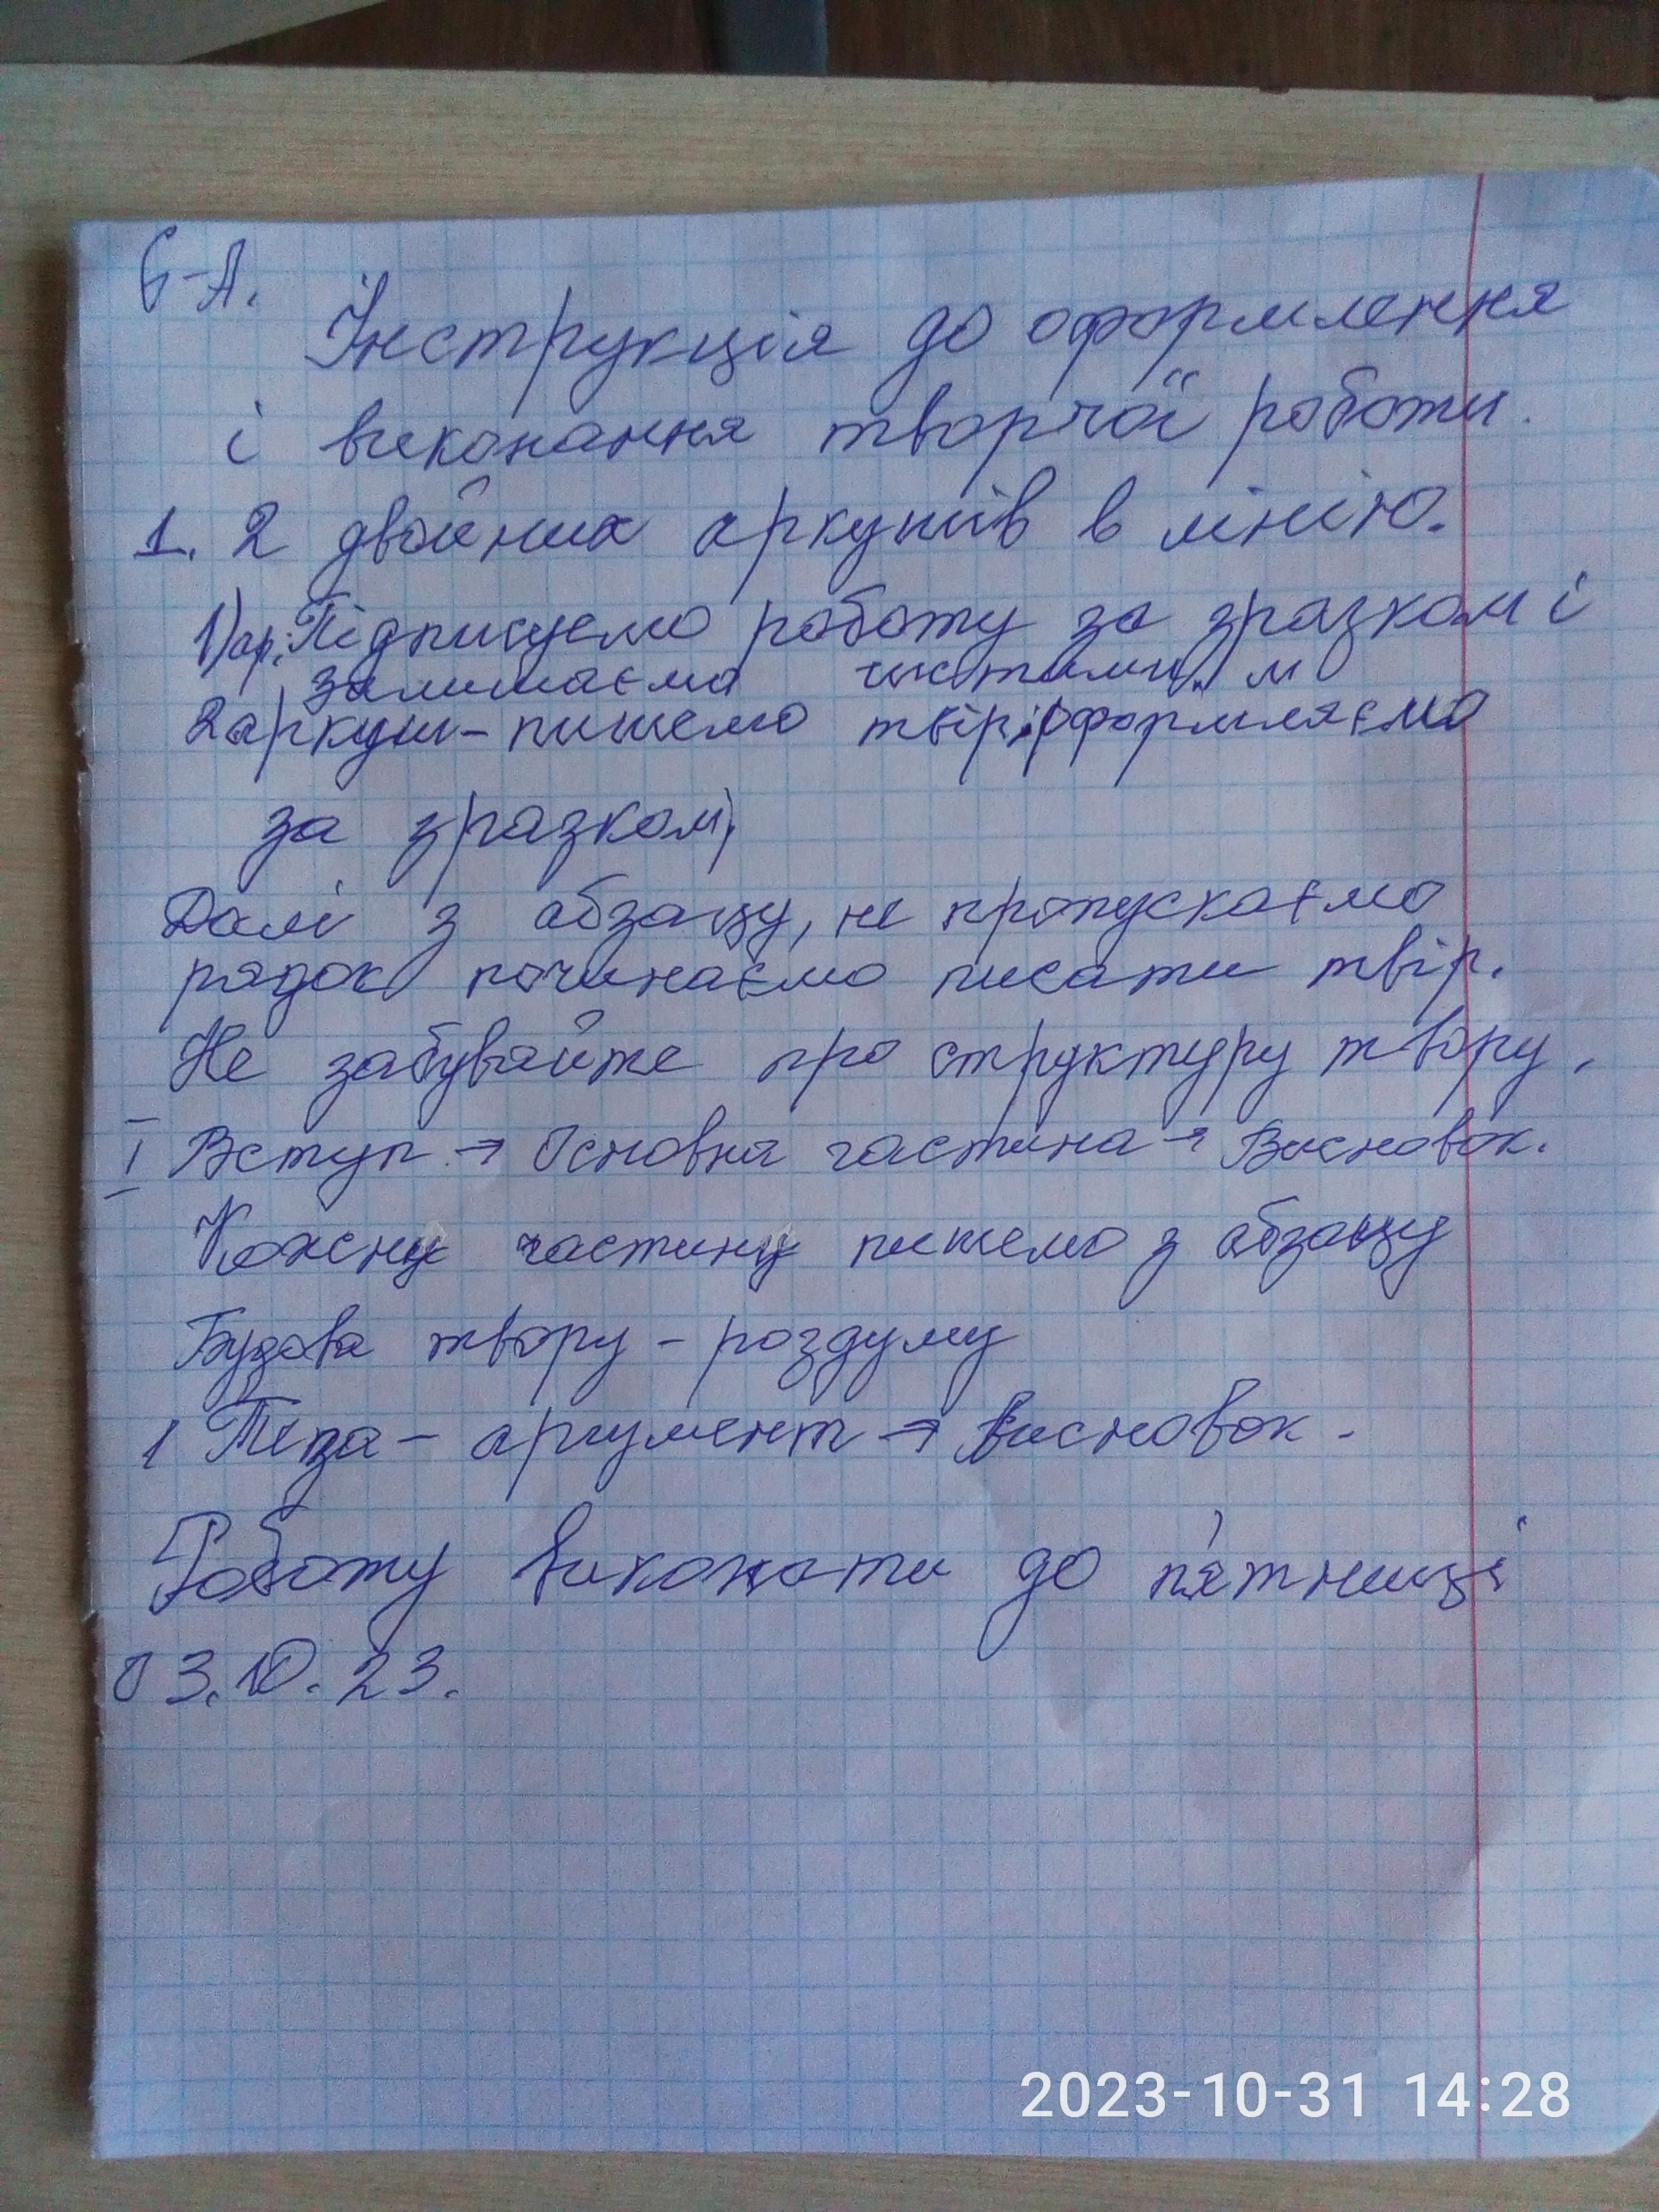 6-А.
Інструкція до оформлення
і виконання творчої роботи.
1. 2 двойних аркушів в лінію.
1) ар.: Підписуємо роботу за зразком і
залишаємо чистими.
2 аркуш - пишемо твір, оформляємо
за зразком,
Далі з абзацу, не пропускаємо
рядок починаємо писати твір.
Не забувайте про структуру твору.
I Вступ → Основна частина → Висновок.
Кожну частину пишемо з абзацу
Будова твору - роздуму
1 Теза - аргумент → висновок.
Роботу виконати до п'ятниці
03.10.23.
2023-10-31 14:28